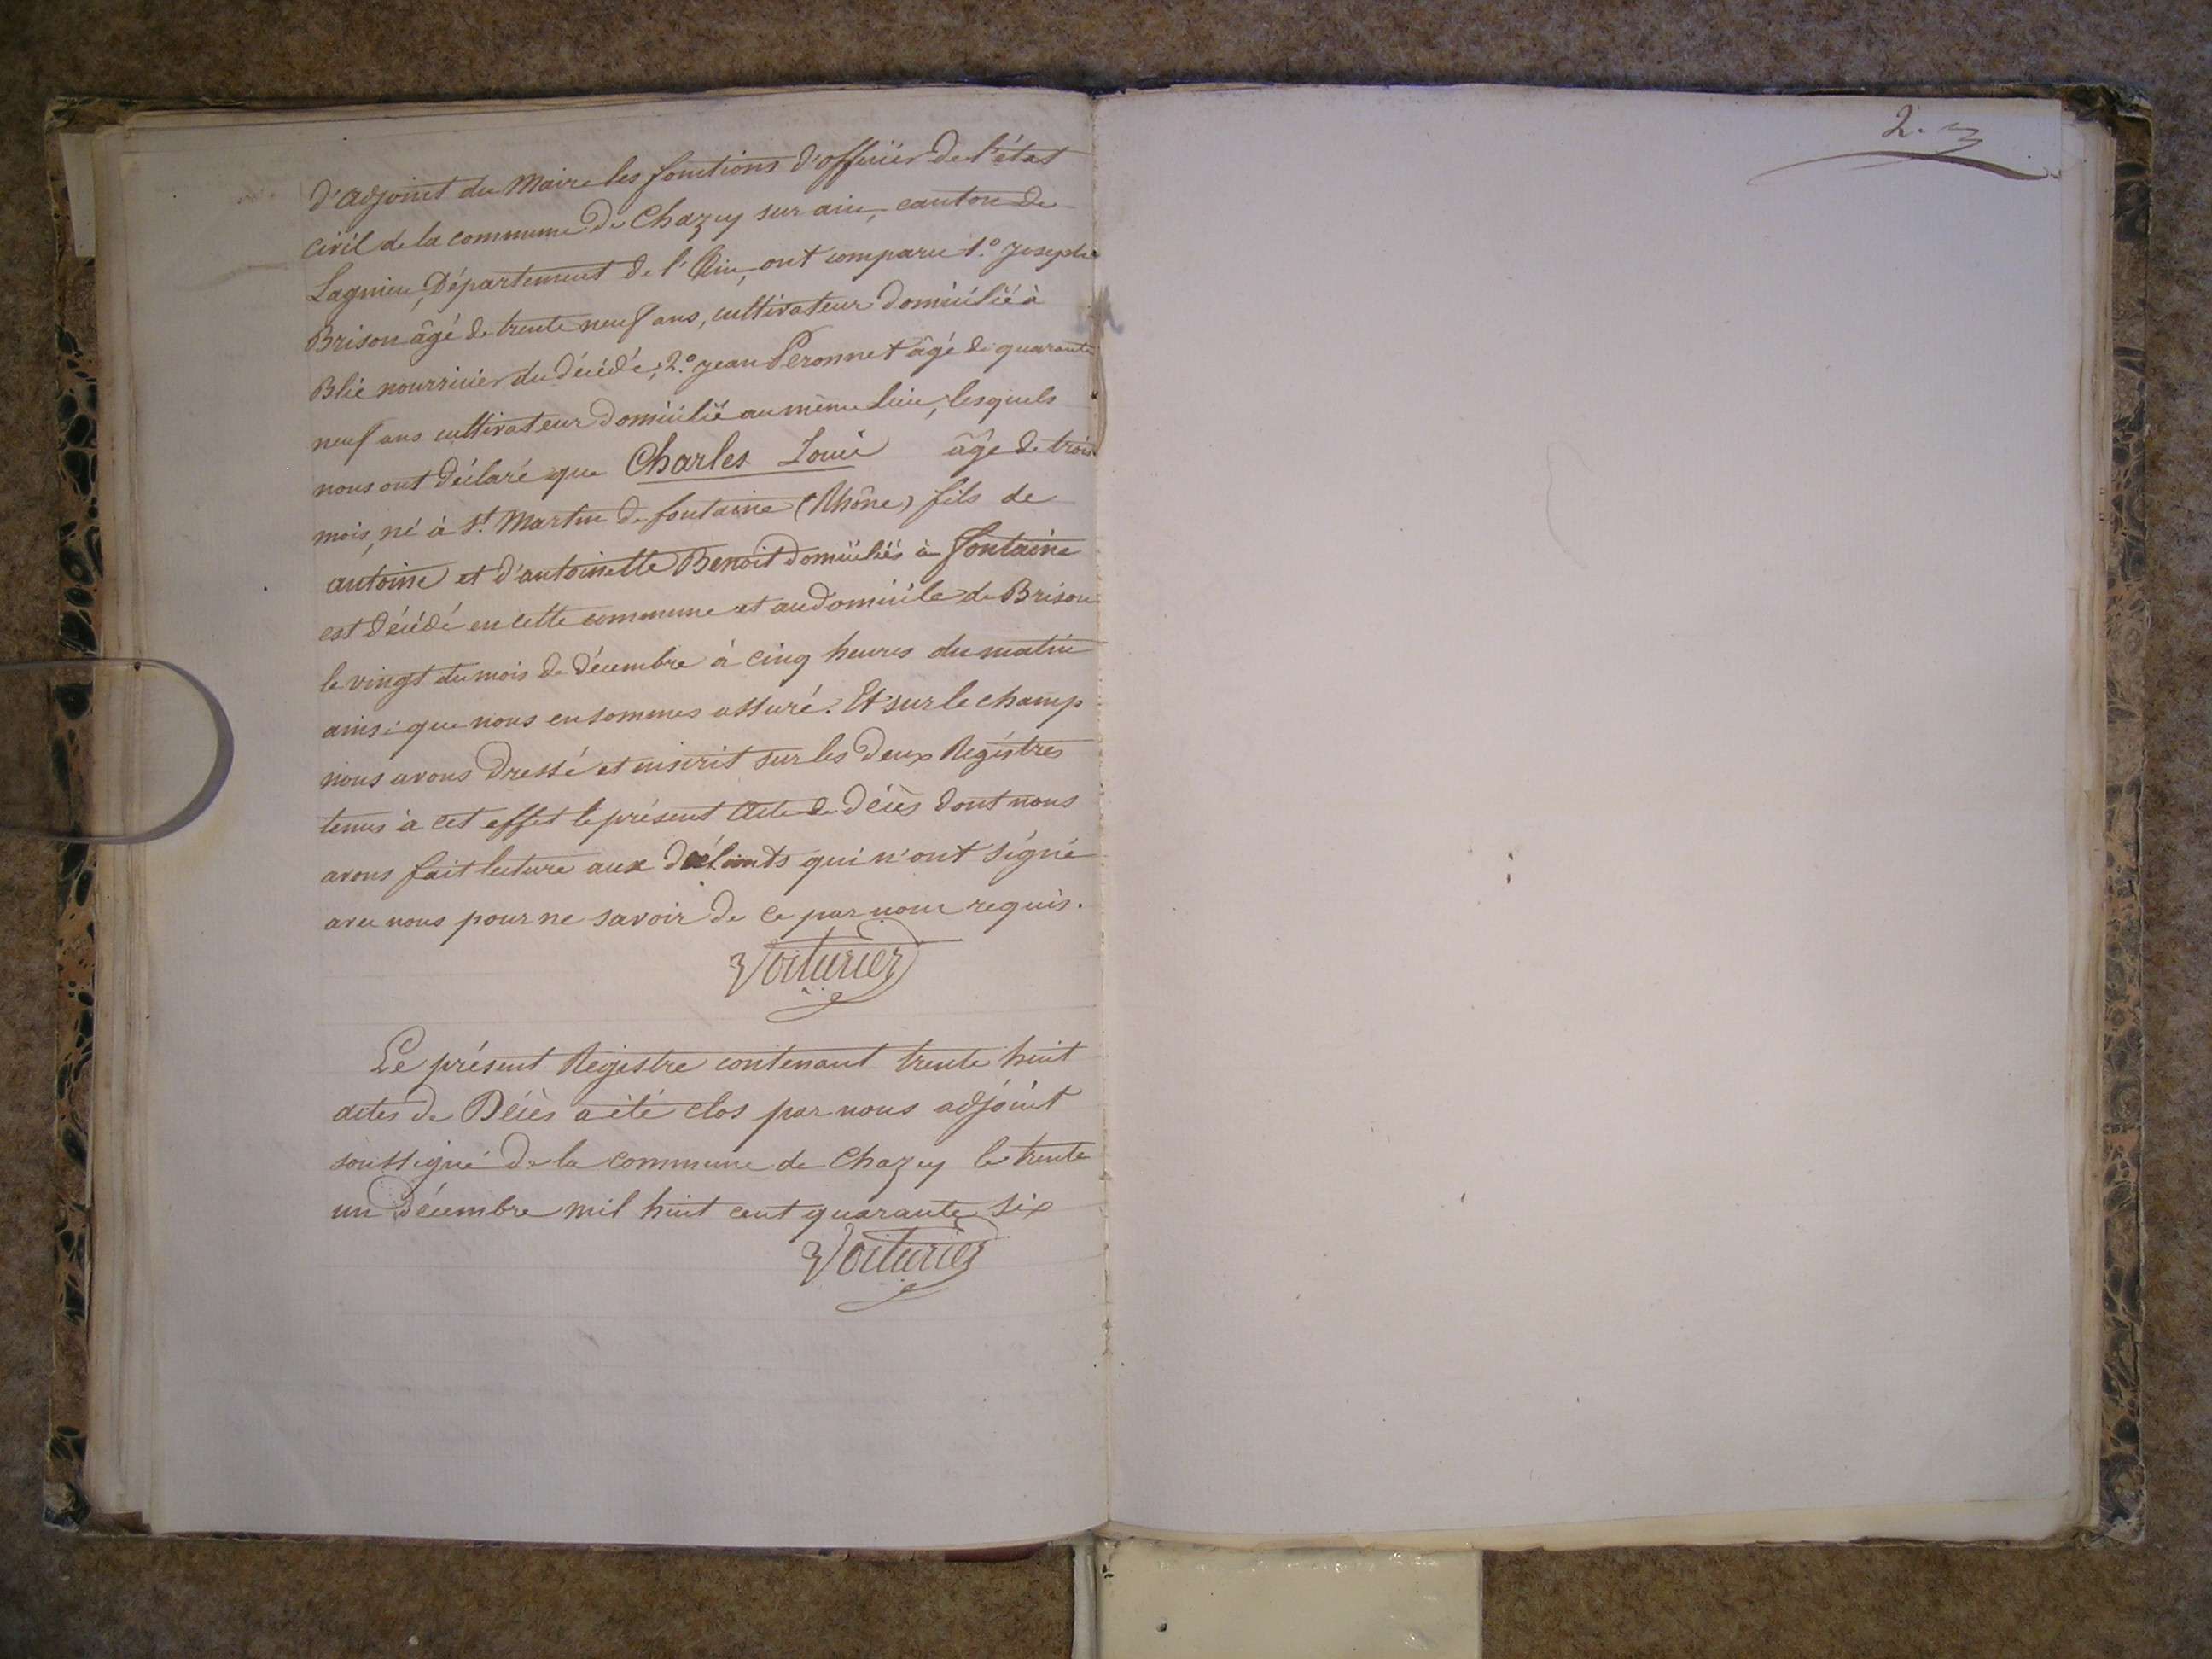 d'adjoint du Maire les fonctions d'officier de l'état
civil de la commune de Chazey sur ain, canton de
Lagnieu, Département de l'Ain, ont comparu 1.º Joseph
Brison âgé de trente neuf ans, cultivateur domicilié à
Blie nourricier du décédé; 2.º jean Peronnet âgé de quarante
neuf ans cultivateur domicilié au même lieu, lesquels
nous ont déclaré que Charles Louis âgé de trois
mois, né à St. Martin de fontaine (Rhône) fils de
antoine et d'antoinette Benoit domiciliés à fontaine
est décédé en cette commune et au domicile de Brison
le vingt du mois de décembre à cinq heures du matin
ainsi que nous en sommes assuré. Et sur le champ
nous avons dressé et inscrit sur les deux Régistres
tenus à cet effet le présent Acte de décès dont nous
avons fait lecture aux qui n'ont signé
avec nous pour ne savoir de ce par nous requis.
Voiturier
Le présent Registre contenant trente huit
actes de Décès a été clos par nous adjoint
soussigné de la commune de Chazey le trente
un décembre mil huit cent quarante six
Voiturier